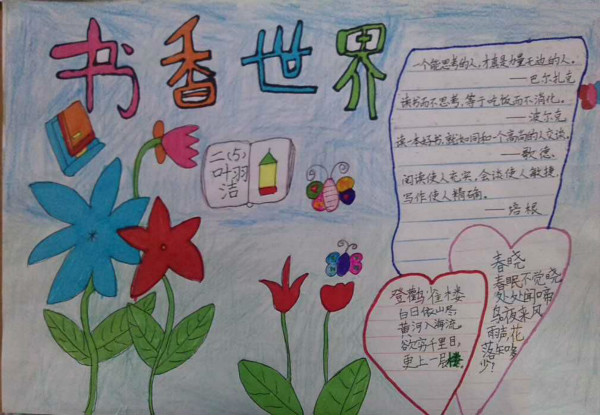 书香世界
二(5)
叶羽洁
一个能思考的人,才真是力量无边的人。
——巴尔扎克
读书而不思考,等于吃饭而不消化。
——波尔克
读一本好书,就如同和一个高尚的人交谈。
——歌德。
阅读使人充实,会谈使人敏捷,
写作使人精确。
——培根
登鹳雀楼
白日依山尽
黄河入海流
欲穷千里目,
更上一层楼。
春晓
春眠不觉晓
处处闻啼
鸟夜来风
雨声花
落知多
少?